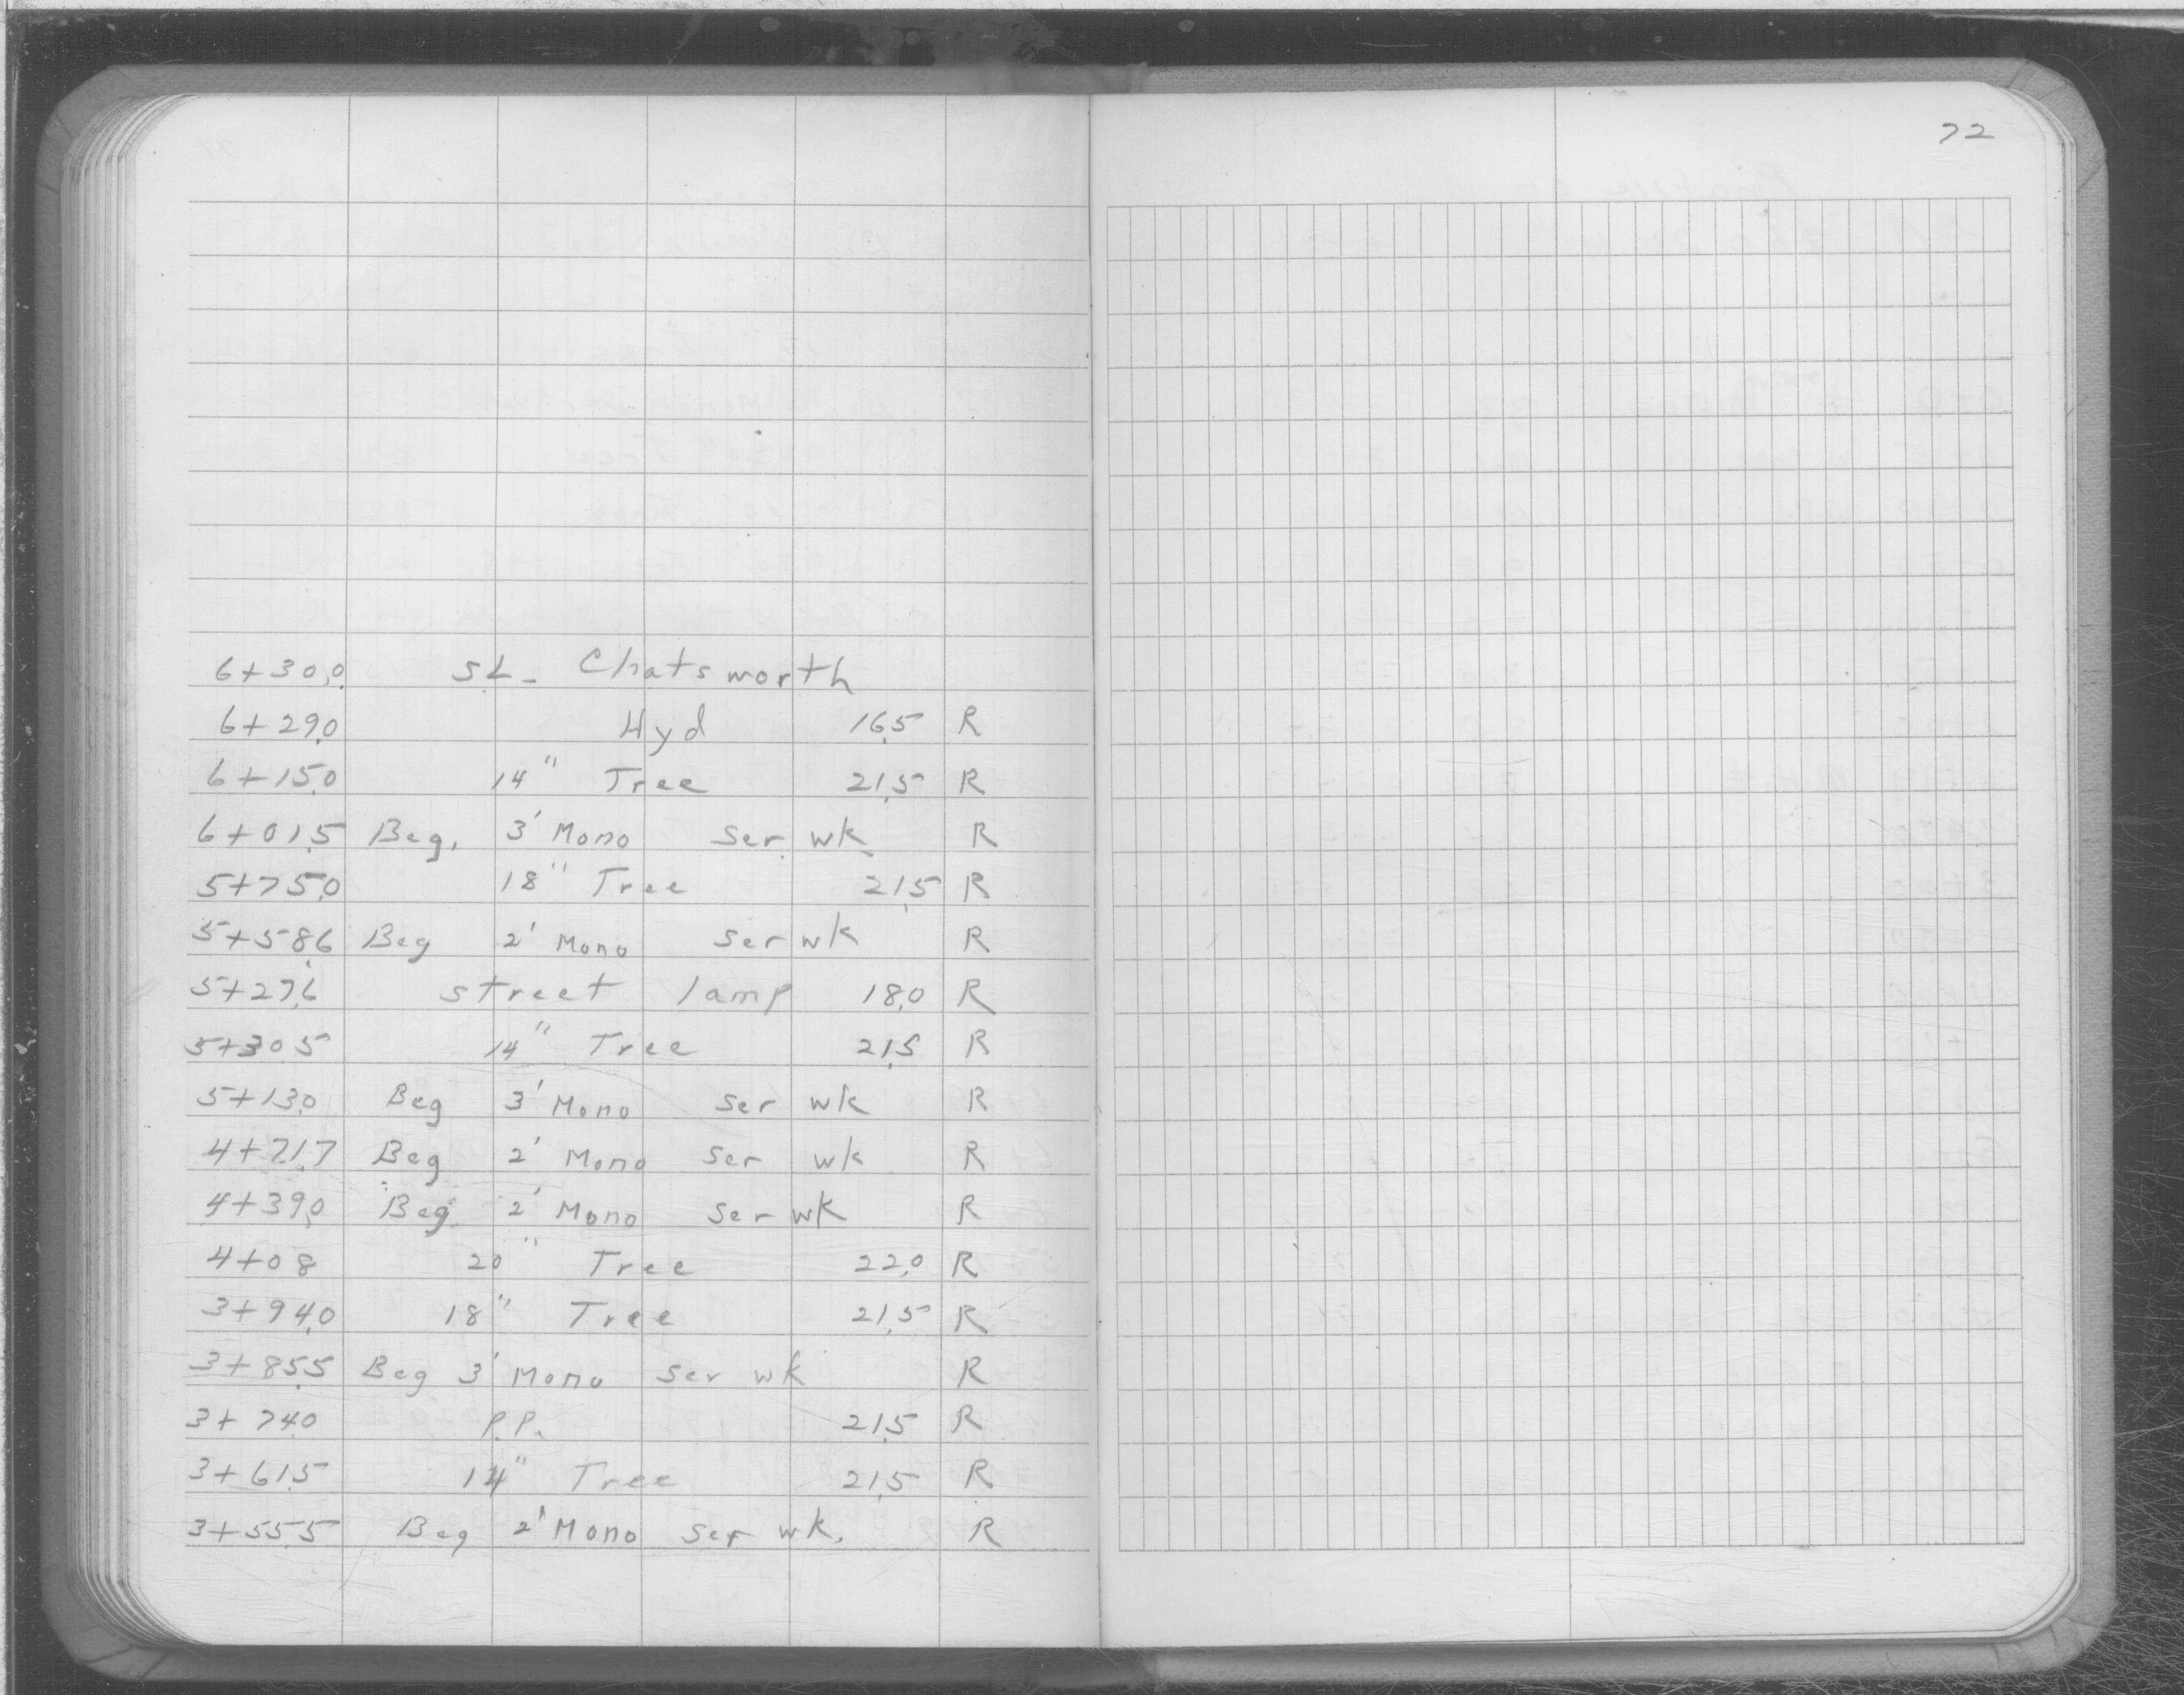 72
6+30.0 S.L. Chatsworth
6+29.0 Hyd 16.5 R
6+15.0 14" Tree 21.5 R
6+01.5 Beg. 3' Mono Ser. wk R
5+75.0 18" Tree 21.5 R
5+58.6 Beg 2' Mono Ser wk R
5+27.6 street lamp 18.0 R
5+30.5 14" Tree 21.5 R
5+13.0 Beg 3' Mono Ser wk R
4+71.7 Beg 2' Mono Ser wk R
4+39.0 Beg. 2' Mono Ser wk R
4+08 20" Tree 22.0 R
3+94.0 18" Tree 21.5 R
3+85.5 Beg 3' Mono Ser wk R
3+74.0 P.P. 21.5 R
3+61.5 14" Tree 21.5 R
3+55.5 Beg 2' Mono Ser wk. R